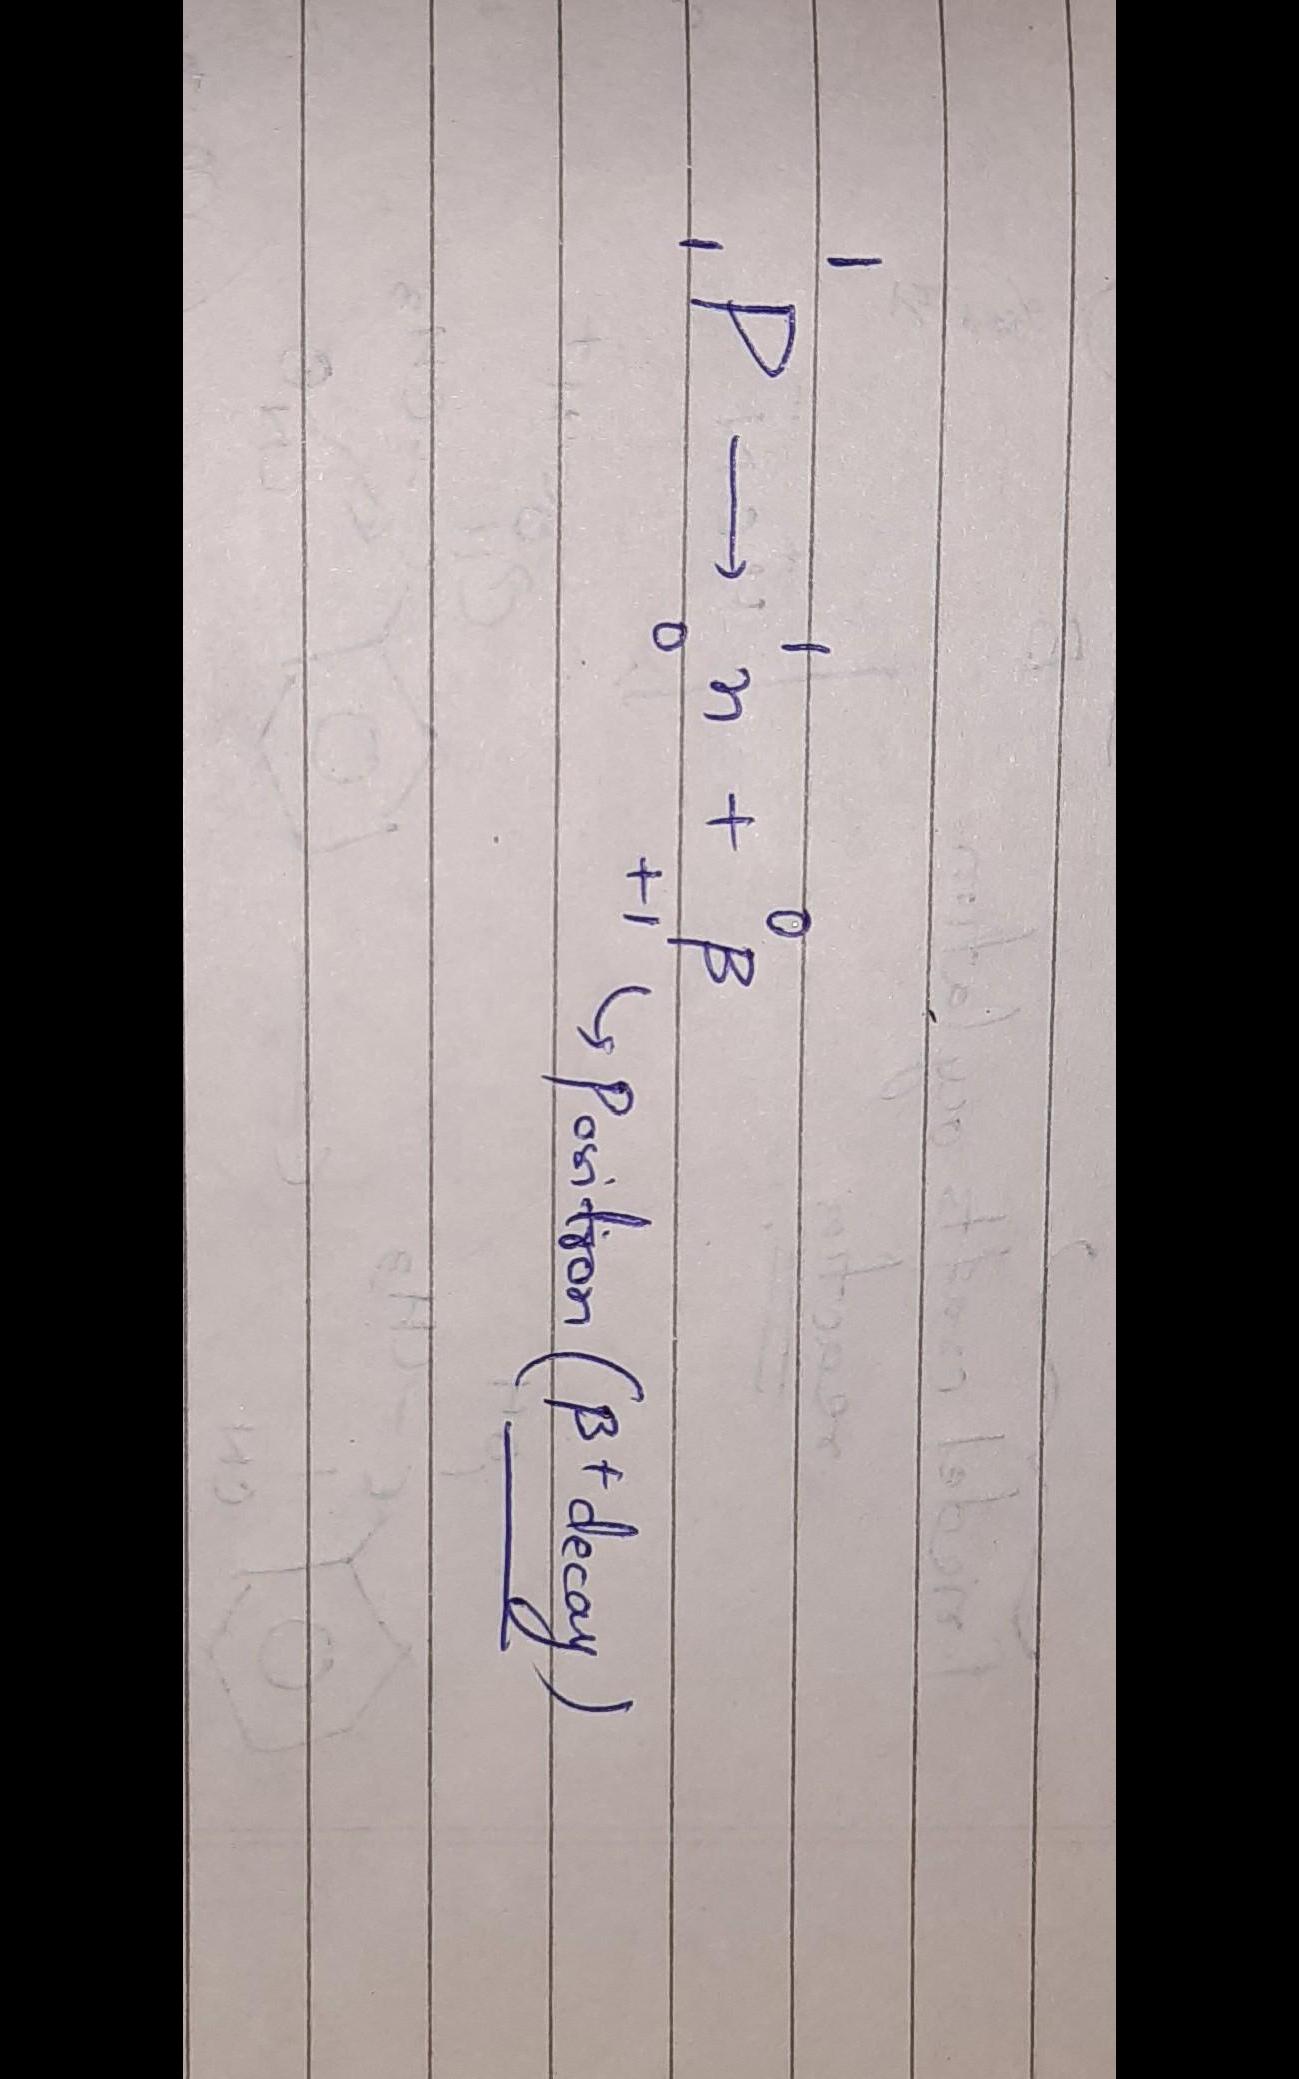 ¹₁P → ¹₀n + ⁰₊₁β
↳ Positron (β+ decay)